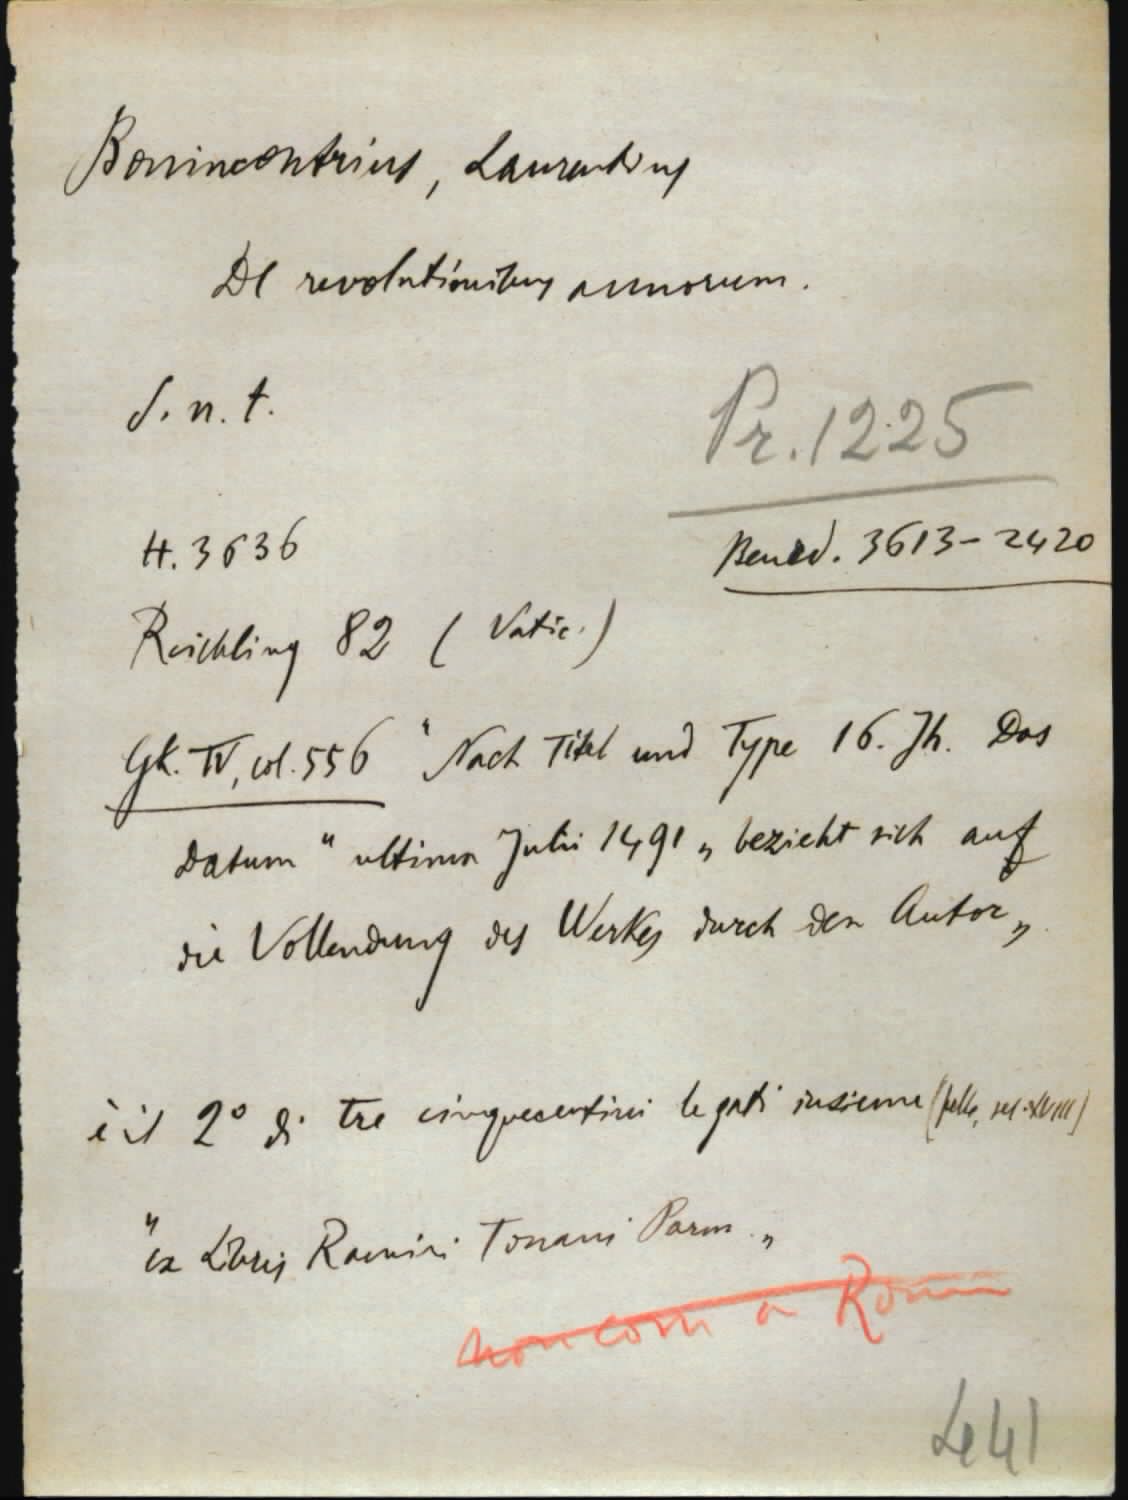 Bonincontrius, Laurentius
De revolutionibus annorum.
S. n. t.
Pr. 1225
H. 3636
Bened. 3613-2420
Reichling 82 (Vatic.)
GK. IV, col. 556 "Nach Titel und Type 16. Jh. Das
Datum "ultima Julii 1491" bezieht sich auf
die Vollendung des Werkes durch den Autor"
è il 2° di tre cinquecentini legati insieme (pelle, sec. XVIII)
"ex Libris Ramiri Tonani Parm."
non com a Roma
441